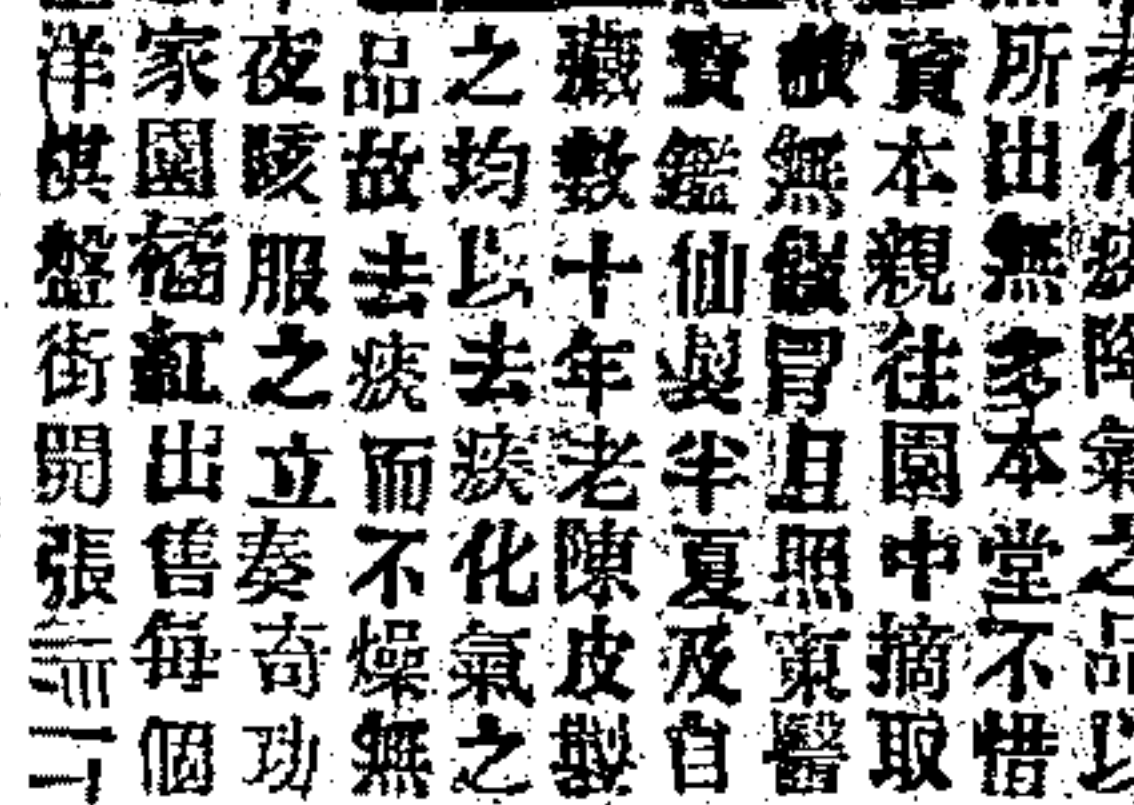 化痰降氣之品以
所出無多本堂不惜
資本親往園中摘取
無冒且照東醫
寶鑑仙製半夏及自
藏數十年老陳皮製
之均以去痰化氣之
品故去痰而不燥無
夜咳服之立奏奇功
家園橘紅出售每個
洋棋盤街開張